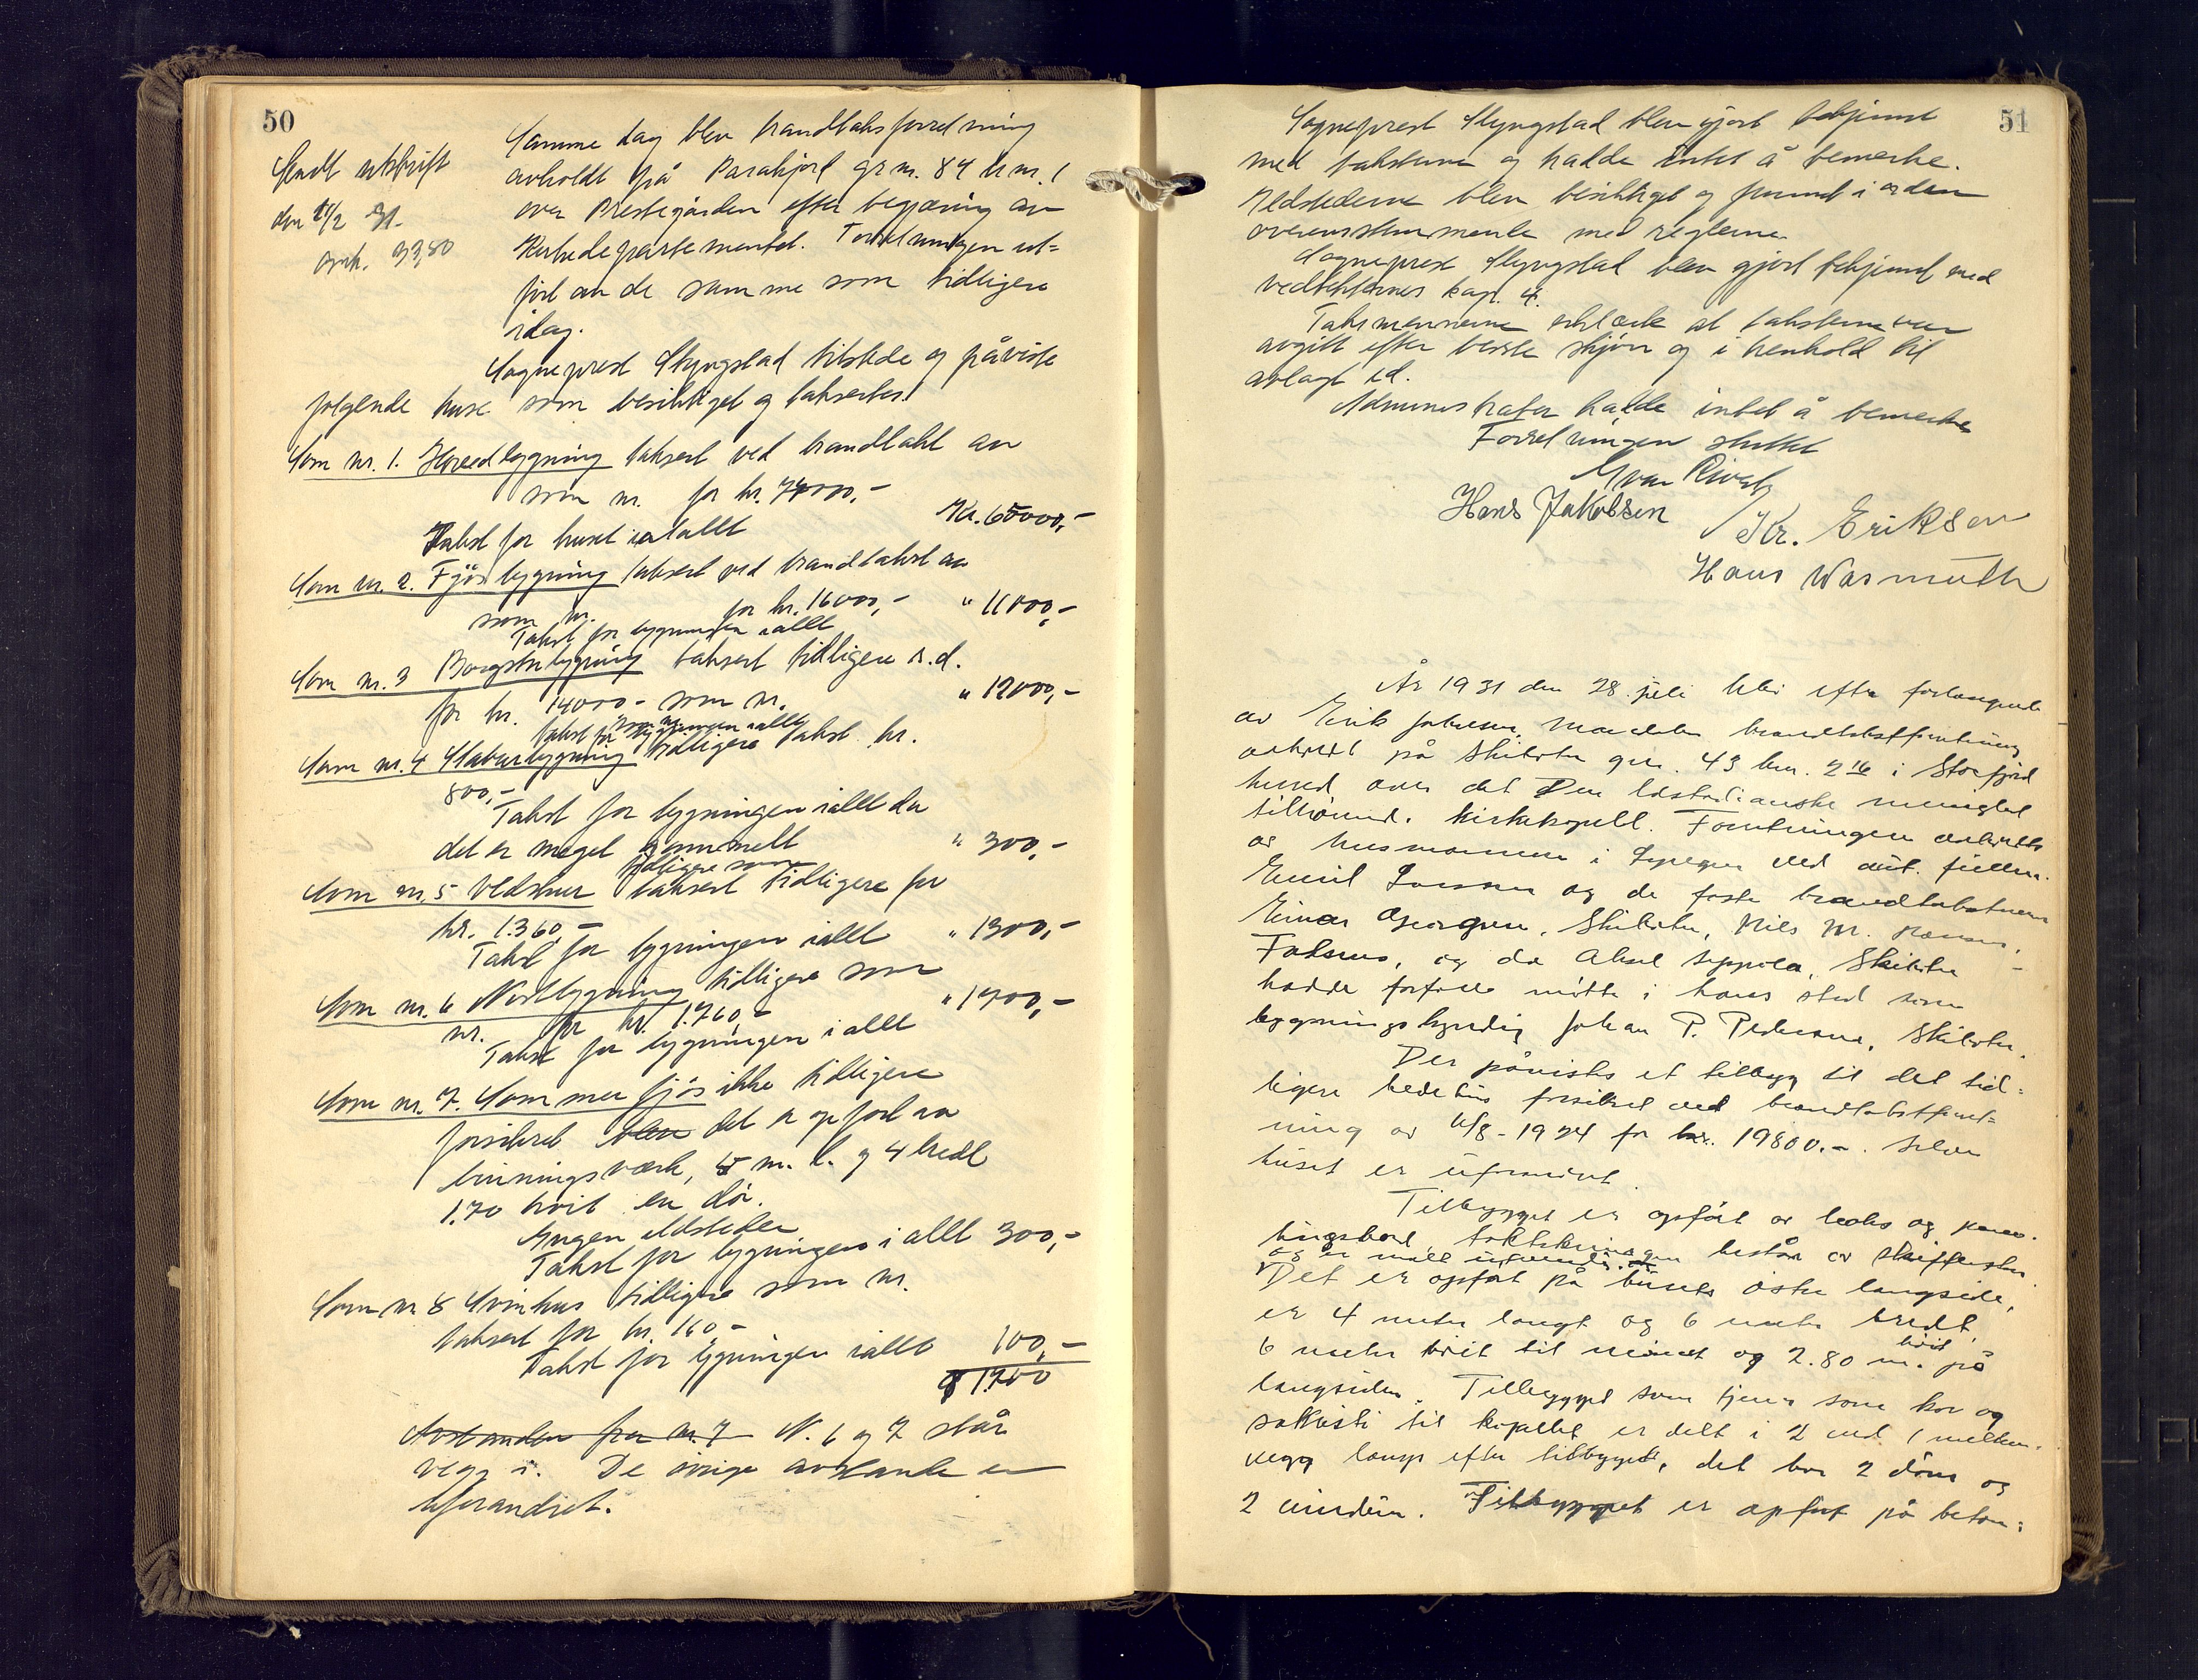 50
Sendt utskrift
den 2/2 31.
omk. 33,80
Samme dag blev brandtakstforretning
avholdt på Parakjord gr nr. 84 br nr. 1
over Prestegården efter begjæring av
Kirkedepartementet. Forretningen ut-
ført av de samme som tidligere
idag.
Sogneprest Skyngstad tilstede og påviste
følgende huse som besiktiget og taksertes:
Som nr. 1. Hovedbygning taksert ved brandtakst av
som nr. for kr. 74000,-
Takst for huset i alt allt
Kr. 65000,-
Som nr. 2. Fjösbygning taksert ved brandtakst av
som nr. for kr. 16000,-
Takst for bygningen i allt
" 11000,-
Som nr. 3 Borgstubygning taksert tidligere s.d.
for kr. 14000- som nr.
Takst for bygningen i allt
" 12000,-
Som nr. 4 Stabursbygning tidligere takst kr.
800,-
Takst for bygningen i allt da
det er meget gammelt
" 300,-
tidligere som
Som nr. 5 Vedskur taksert tidligere for
kr. 1.360,-
Takst for bygningen i allt
" 1300,-
Som nr. 6 Nostbygning tidligere som
nr. for kr. 1.760,-
Takst for bygningen i allt
" 1700,-
Som nr. 7. Sommerfjös ikke tidligere
forsikret blev det er opført av
bindingsverk, 5 m. l. og 4 bredt
1.70 høit en dør.
Ingen ildsteder
Takst for bygningen i allt 300,-
Som nr 8 Svinhus tidligere som nr.
taksert for kr. 160,-
Takst for bygningen i allt
100,-
91700
Avstanden fra nr. 7 N. 6 og 7 står
vegg i. De øvrige avstande er
uforandret.
51
Sogneprest Skyngstad blev gjort bekjendt
med taksterne og hadde intet å bemerke.
Ildstederne blev besiktiget og funnet i orden
overensstemmende med reglerne.
Sogneprest Skyngstad blev gjort bekjendt med
vedtekternes kap. 4.
Taksmennene erklærte at taksterne var
avgitt efter beste skjønn og i henhold til
avlagt ed.
Administrator hadde intet å bemerke
Forretningen sluttet
Hans Jakobsen
Kr. Eriksen
Hans Warmuth
År 1931 den 28. juli blev efter forlangende
av Erik Johnsen, Mandalen brandtakstforretning
avholdt på Skibotn gnr. 43 bnr. 2 16 i Storfjord
herred over det Den læstadianske menighet
tilhørend. kirkekapell. Forretningen avholdtes
av lensmannen i Lyngen ved aut. fullm.
Emil Larsen og de faste brandtakstmenn
Einar Georgsen, Skibotn, Nils M. Hansen,
Falsnes, og da Aksel Seppola, Skibotn
hadde forfall møtte i hans sted som
bygningskyndig Johan P. Pedersen, Skibotn.
Der påvistes et tilbygg til det tid-
ligere bedehus forsikret ved brandtakstforret-
ning av 11/8-1924 for kr. 19800.-. Selve
huset er uforandret.
Tilbygget er opført av laks og pane-
lingsbord, taktekningen består av skifersten
og er malt utvendig.
Det er opført på husets østre langside,
er 4 meter langt og 6 meter bredt,
6 meter høit til mønet og 2.80 m. høit på
langsiden. Tilbygget som tjener som kor og
sakristi til kapellet er delt i 2 ved 1 mellem-
vegg langs efter tilbygget, det har 2 döre og
2 vinduer. Tilbygget er opført på beton-